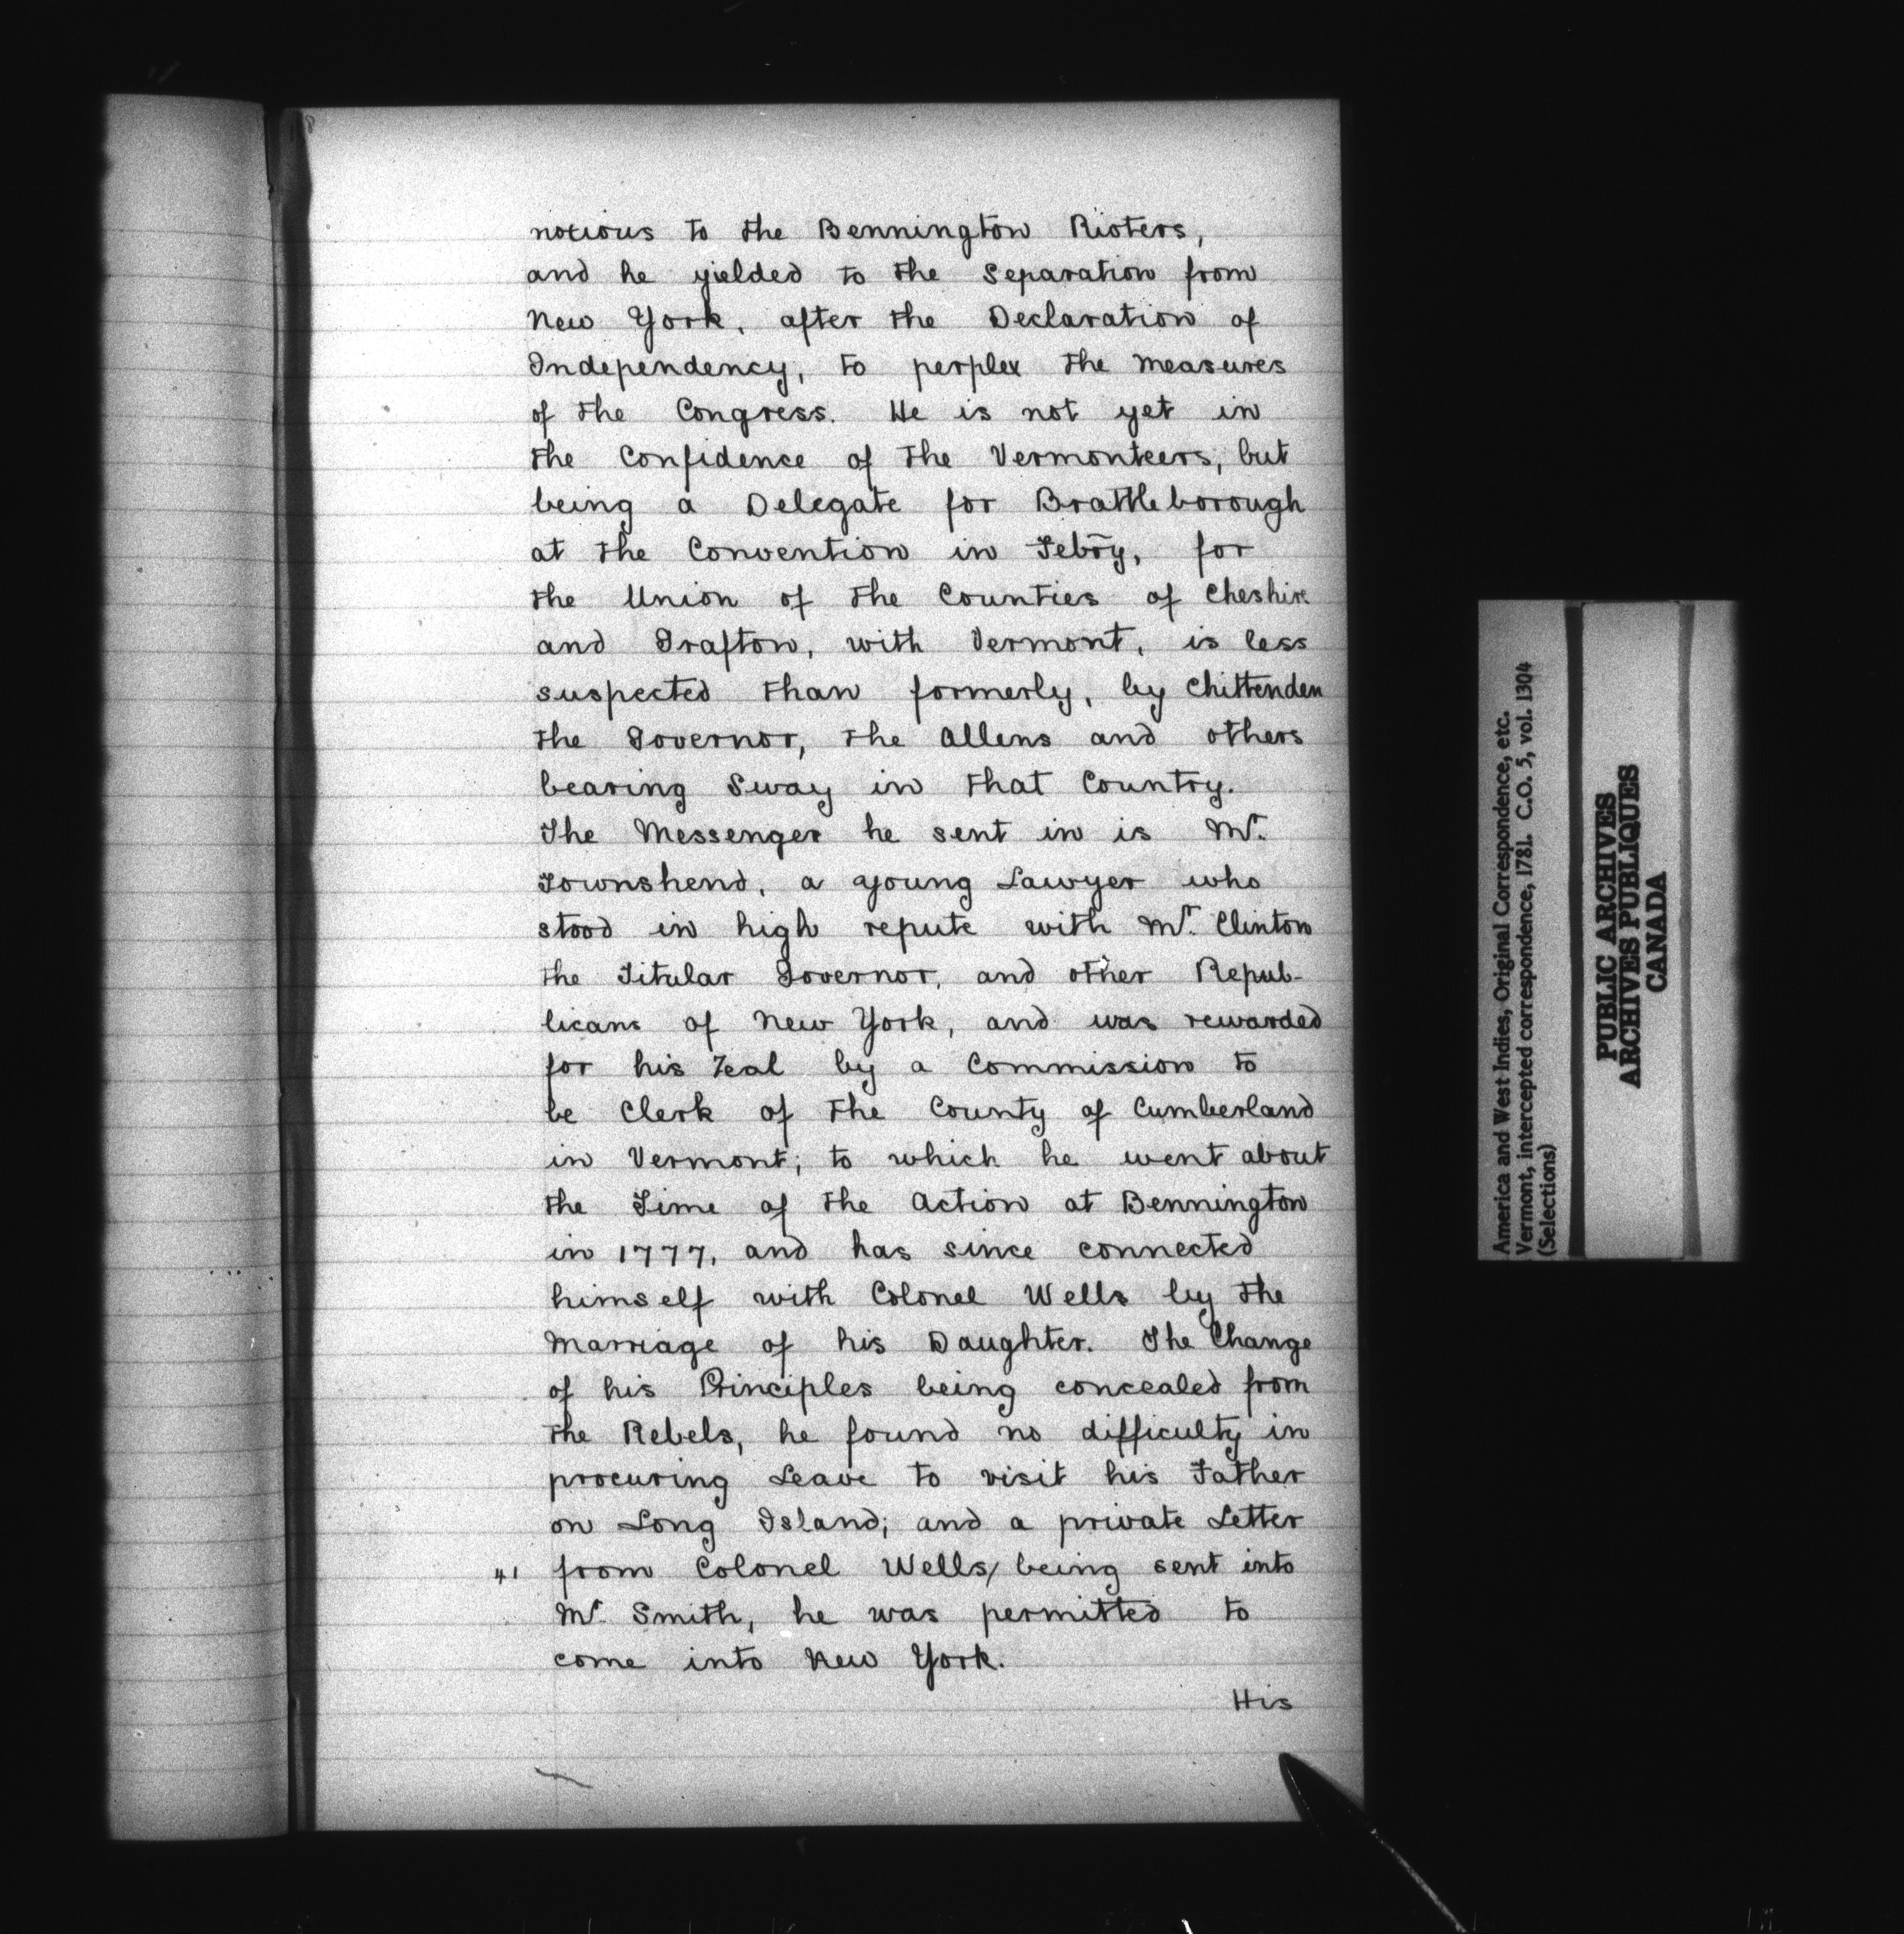 noxious to the Bennington Rioters,
and he yielded to the Separation from
New York, after the Declaration of
Independency, to perplex the measures
of the Congress. He is not yet in
the Confidence of the Vermonteers, but
being a Delegate for Brattleborough
at the Convention in Febry, for
the Union of the Counties of Cheshire
and Grafton, with Vermont, is less
suspected than formerly, by Chittenden
the Governor, the Allens and others
bearing Sway in that Country.
The Messenger he sent in is Mr.
Townshend, a young Lawyer who
stood in high repute with Mr. Clinton
the Titular Governor, and other Repub-
licans of New York, and was rewarded
for his Zeal by a Commission to
be Clerk of the County of Cumberland
in Vermont; to which he went about
the Time of the Action at Bennington
in 1777, and has since connected
himself with Colonel Wells by the
Marriage of his Daughter. The Change
of his Principles being concealed from
the Rebels, he found no difficulty in
procuring Leave to visit his Father
on Long Island; and a private Letter
41 from Colonel Wells/ being sent into
Mr. Smith, he was permitted to
come into New York.
His
America and West Indies, Original Correspondence, etc.
Vermont, intercepted correspondence, 1781. C.O. 5, vol. 1304
(Selections)
PUBLIC ARCHIVES
ARCHIVES PUBLIQUES
CANADA